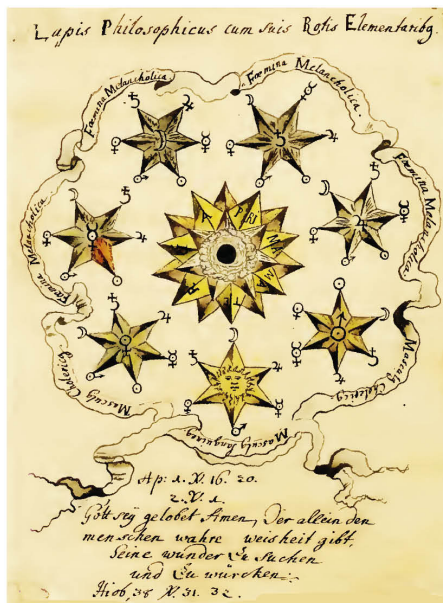 Lapis Philosophicus cum suis Rotis Elementaribg.
Fœmina Melancholica.
Fœmina Melancholica.
Fœmina Melancholica
Fœmina Melancholica
Masculg Cholericg
Masculg Cholericg
Masculg Sanguineg
PRIMA MATERIA
Ap: 1. V. 16. 20.
2. V. 1.
Gott seÿ gelobet Amen, Der allein den
menschen wahre weisheit gibt,
Seine wunder Zu suchen
und Zu würcken.
Hiob, 38 V. 31. 32.